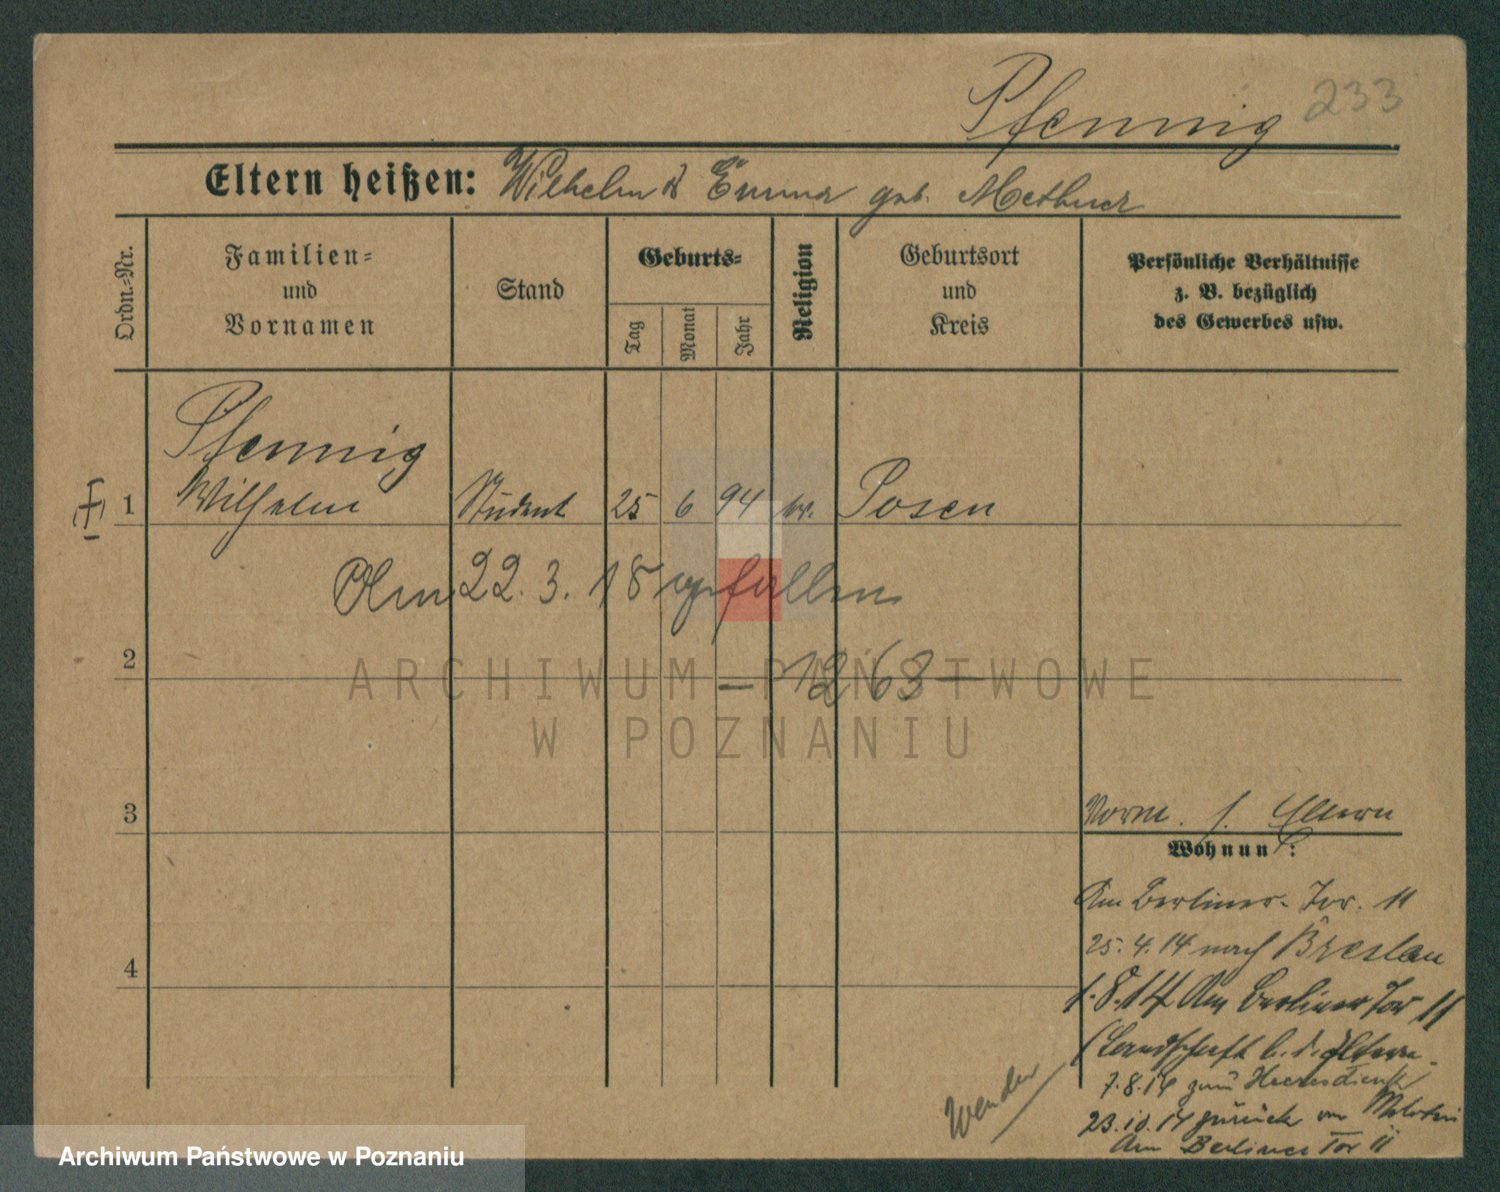 Pfennig 233
Eltern heißen: Wilhelm & Emma geb. Methner
Ordn.-Nr.
Familien=
und
Vornamen
Stand
Geburts=
Tag
Monat
Jahr
Religion
Geburtsort
und
Kreis
Persönliche Verhältnisse
z. B. bezüglich
des Gewerbes usw.
Pfennig
1 Wilhelm Student 25 6 94 ev. Posen
Am 22.3.18 gefallen
2
— 1263 —
ARCHIWUM PAŃSTWOWE
W POZNANIU
3
Vorm. s. Eltern
Wohnung:
Am Berliner Tor. 11
25.4.14 nach Breslau
4
1.8.14 Am Berliner Tor 11
(Landschaft b. d. Eltern
7.8.14 zum Heeresdienst
23.10.14 zurück von
Am Berliner Tor 11
wenden
Archiwum Państwowe w Poznaniu